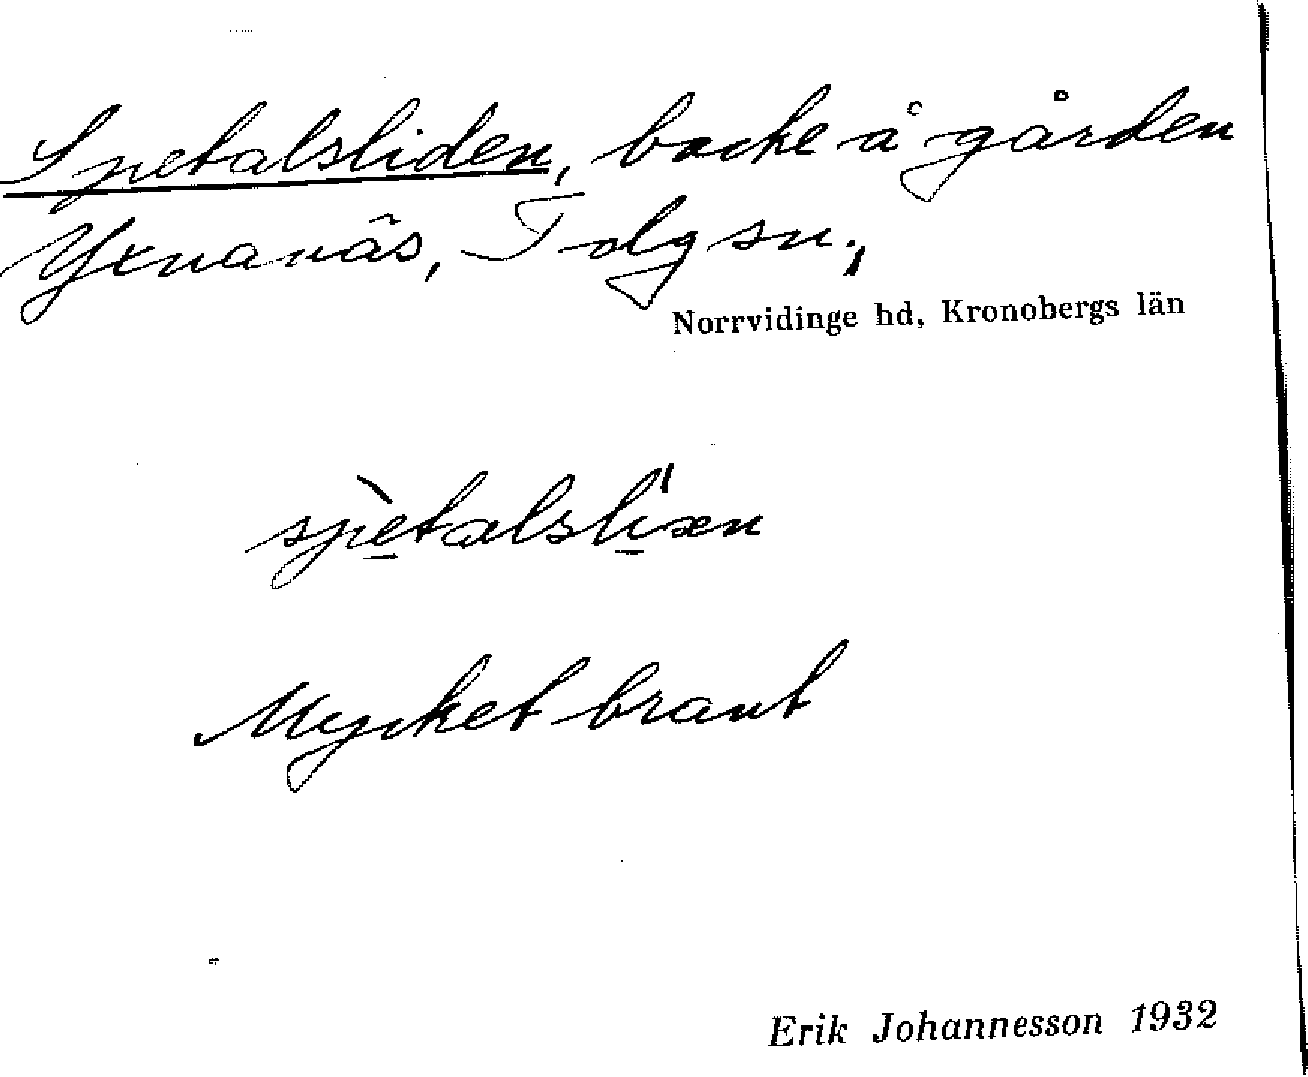 Spetalsliden, backe å gården
Yxnanäs, Tolg sn.,
Norrvidinge hd, Kronobergs län
spètalslíæn
Mycket brant
Erik Johannesson 1932